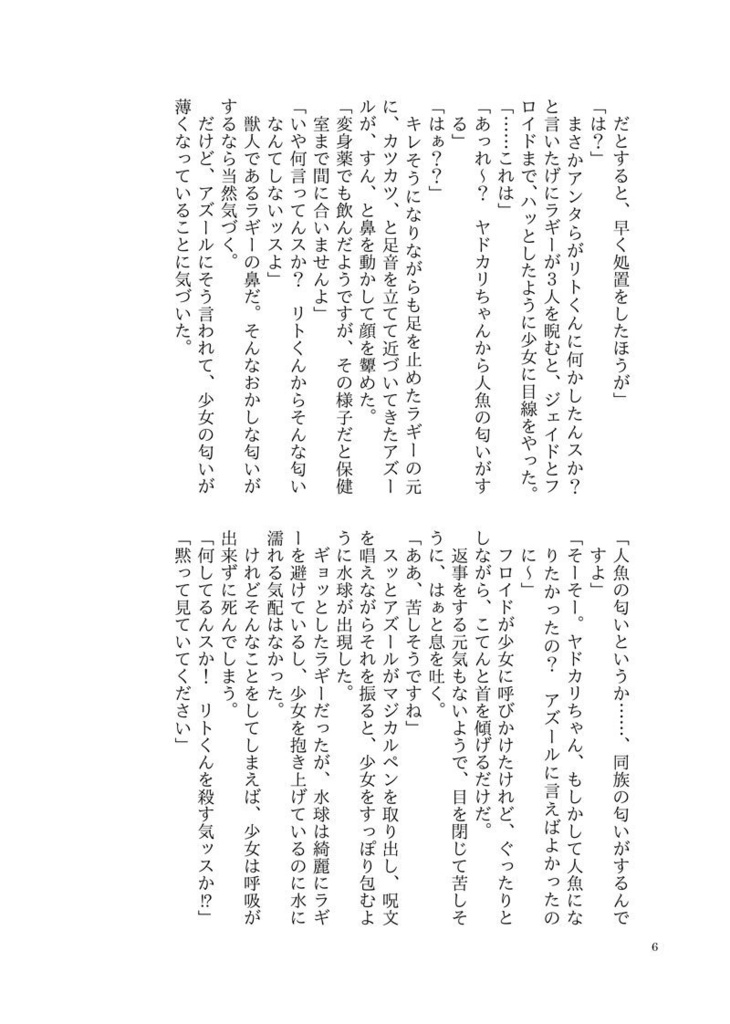 だとすると、早く処置をしたほうが」
「は？」
まさかアンタらがリトくんに何かしたんスか？
と言いたげにラギーが３人を睨むと、ジェイドとフ
ロイドまで、ハッとしたように少女に目線をやった。
「……これは」
「あっれ〜？　ヤドカリちゃんから人魚の匂いがす
る」
「はぁ？？」
キレそうになりながらも足を止めたラギーの元
に、カツカツ、と足音を立てて近づいてきたアズー
ルが、すん、と鼻を動かして顔を顰めた。
「変身薬でも飲んだようですが、その様子だと保健
室まで間に合いませんよ」
「いや何言ってんスか？　リトくんからそんな匂い
なんてしないッスよ」
獣人であるラギーの鼻だ。そんなおかしな匂いが
するなら当然気づく。
だけど、アズールにそう言われて、少女の匂いが
薄くなっていることに気づいた。
「人魚の匂いというか……、同族の匂いがするんで
すよ」
「そーそー。ヤドカリちゃん、もしかして人魚にな
りたかったの？　アズールに言えばよかったの
に〜」
フロイドが少女に呼びかけたけれど、ぐったりと
しながら、こてんと首を傾げるだけだ。
返事をする元気もないようで、目を閉じて苦しそ
うに、はぁと息を吐く。
「ああ、苦しそうですね」
スッとアズールがマジカルペンを取り出し、呪文
を唱えながらそれを振ると、少女をすっぽり包むよ
うに水球が出現した。
ギョッとしたラギーだったが、水球は綺麗にラギ
ーを避けているし、少女を抱き上げているのに水に
濡れる気配はなかった。
けれどそんなことをしてしまえば、少女は呼吸が
出来ずに死んでしまう。
「何してるんスか！　リトくんを殺す気ッスか⁉」
「黙って見ていてください」
6